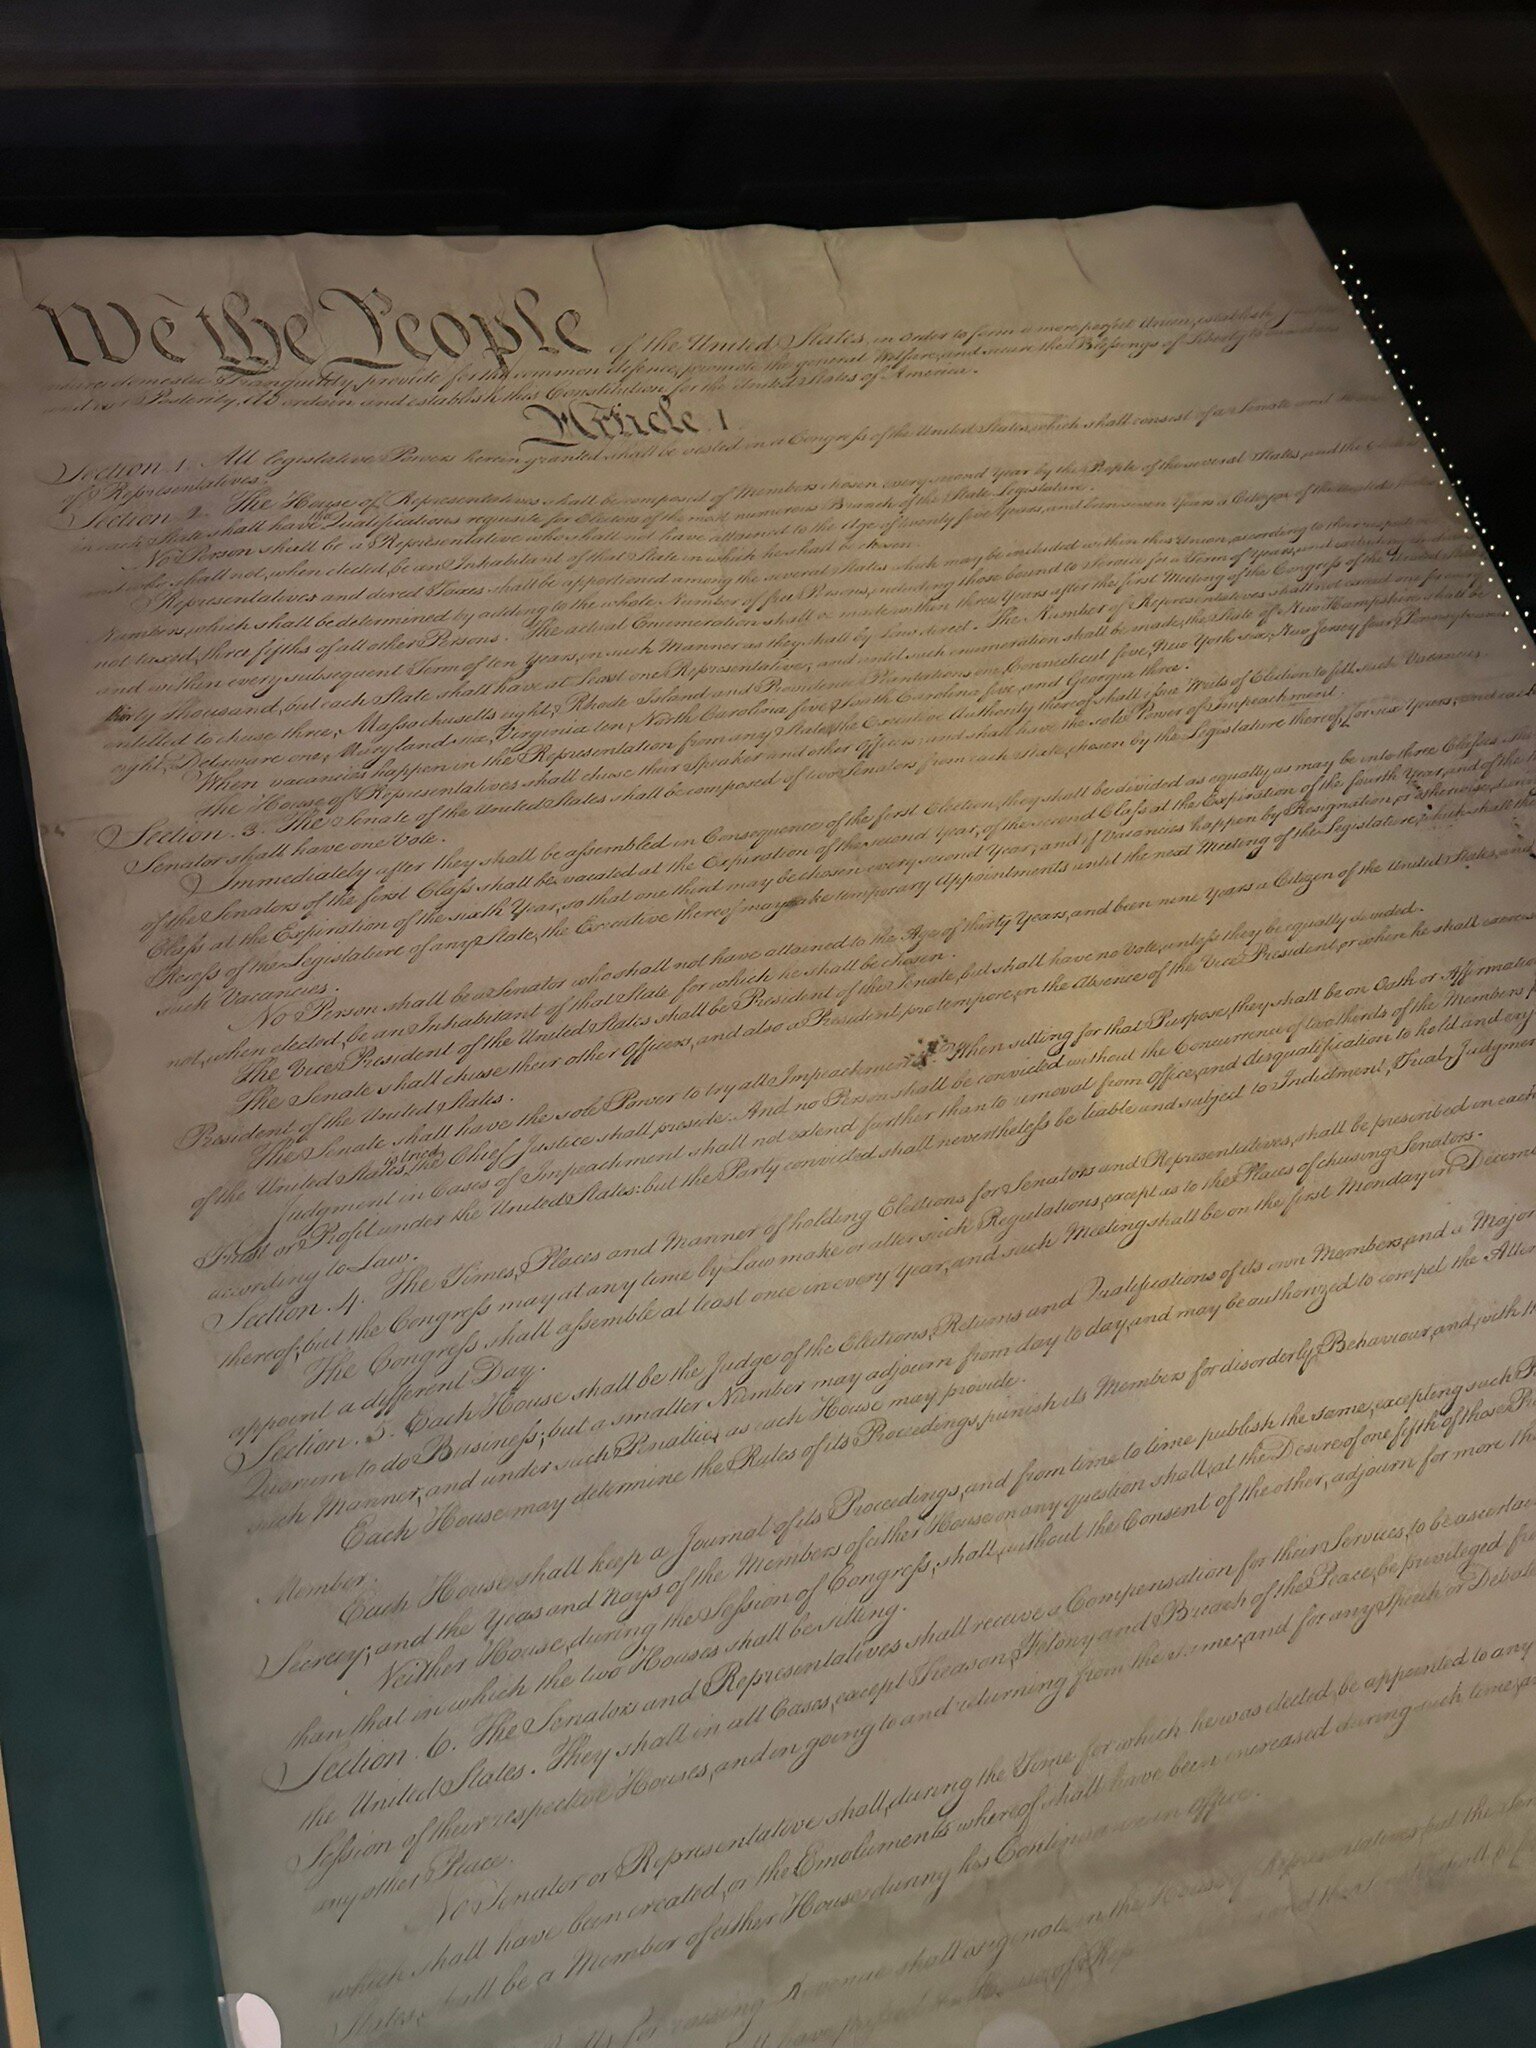 We the People of the United States, in Order to form a more perfect Union, establish
domestic Tranquility, provide for the common defence, promote the general Welfare, and secure the Blessings of Liberty to
and our Posterity, do ordain and establish this Constitution for the United States of America.
Article I.
Section. 1. All legislative Powers herein granted shall be vested in a Congress of the United States, which shall consist of a Senate and
of Representatives.
Section. 2. The House of Representatives shall be composed of Members chosen every second Year by the People of the several States, and the
in each State shall have the Qualifications requisite for Electors of the most numerous Branch of the State Legislature.
No Person shall be a Representative who shall not have attained to the Age of twenty five Years, and been seven Years a Citizen of the United States,
and who shall not, when elected, be an Inhabitant of that State in which he shall be chosen.
Representatives and direct Taxes shall be apportioned among the several States which may be included within this Union, according to their respective
Numbers, which shall be determined by adding to the whole Number of free Persons, including those bound to Service for a Term of Years, and excluding Indians
not taxed, three fifths of all other Persons. The actual Enumeration shall be made within three Years after the first Meeting of the Congress of the United States,
and within every subsequent Term of ten Years, in such Manner as they shall by Law direct. The Number of Representatives shall not exceed one for every
thirty Thousand, but each State shall have at Least one Representative; and until such enumeration shall be made, the State of New Hampshire shall be
entitled to chuse three, Massachusetts eight, Rhode Island and Providence Plantations one, Connecticut five, New York six, New Jersey four, Pennsylvania
eight, Delaware one, Maryland six, Virginia ten, North Carolina five, South Carolina five, and Georgia three.
When vacancies happen in the Representation from any State, the Executive Authority thereof shall issue Writs of Election to fill such Vacancies.
The House of Representatives shall chuse their Speaker and other Officers; and shall have the sole Power of Impeachment.
Section. 3. The Senate of the United States shall be composed of two Senators from each State, chosen by the Legislature thereof, for six Years; and each
Senator shall have one Vote.
Immediately after they shall be assembled in Consequence of the first Election, they shall be divided as equally as may be into three Classes. The
of the Senators of the first Class shall be vacated at the Expiration of the second Year, of the second Class at the Expiration of the fourth Year, and of the
Class at the Expiration of the sixth Year, so that one third may be chosen every second Year; and if Vacancies happen by Resignation, or otherwise, during
Recess of the Legislature of any State, the Executive thereof may make temporary Appointments until the next Meeting of the Legislature, which shall then
such Vacancies.
No Person shall be a Senator who shall not have attained to the Age of thirty Years, and been nine Years a Citizen of the United States, and
not, when elected, be an Inhabitant of that State for which he shall be chosen.
The Vice President of the United States shall be President of the Senate, but shall have no Vote, unless they be equally divided.
The Senate shall chuse their other Officers, and also a President pro tempore, in the Absence of the Vice President, or when he shall exercise
President of the United States.
The Senate shall have the sole Power to try all Impeachments. When sitting for that Purpose, they shall be on Oath or Affirmation
of the United States is tried, the Chief Justice shall preside: And no Person shall be convicted without the Concurrence of two thirds of the Members
Judgment in Cases of Impeachment shall not extend further than to removal from Office, and disqualification to hold and enjoy
Trust or Profit under the United States: but the Party convicted shall nevertheless be liable and subject to Indictment, Trial, Judgment
according to Law.
Section. 4. The Times, Places and Manner of holding Elections for Senators and Representatives, shall be prescribed in each
thereof; but the Congress may at any time by Law make or alter such Regulations, except as to the Places of chusing Senators.
The Congress shall assemble at least once in every Year, and such Meeting shall be on the first Monday in December
appoint a different Day.
Section. 5. Each House shall be the Judge of the Elections, Returns and Qualifications of its own Members, and a Major
Quorum to do Business; but a smaller Number may adjourn from day to day, and may be authorized to compel the Atten
such Manner, and under such Penalties as each House may provide.
Each House may determine the Rules of its Proceedings, punish its Members for disorderly Behaviour, and, with the
Member.
Each House shall keep a Journal of its Proceedings, and from time to time publish the same, excepting such
Secrecy; and the Yeas and Nays of the Members of either House on any question shall, at the Desire of one fifth of those
Neither House, during the Session of Congress, shall, without the Consent of the other, adjourn for more than
than that in which the two Houses shall be sitting.
Section. 6. The Senators and Representatives shall receive a Compensation for their Services, to be ascertain
the United States. They shall in all Cases, except Treason, Felony and Breach of the Peace, be privileged from
Session of their respective Houses, and in going to and returning from the same; and for any Speech or Debate
any other Place.
No Senator or Representative shall, during the Time for which he was elected, be appointed to any
which shall have been created, or the Emoluments whereof shall have been encreased during such time; and
States, shall be a Member of either House during his Continuance in Office.
Bills for raising Revenue shall originate in the House of Representatives; but the